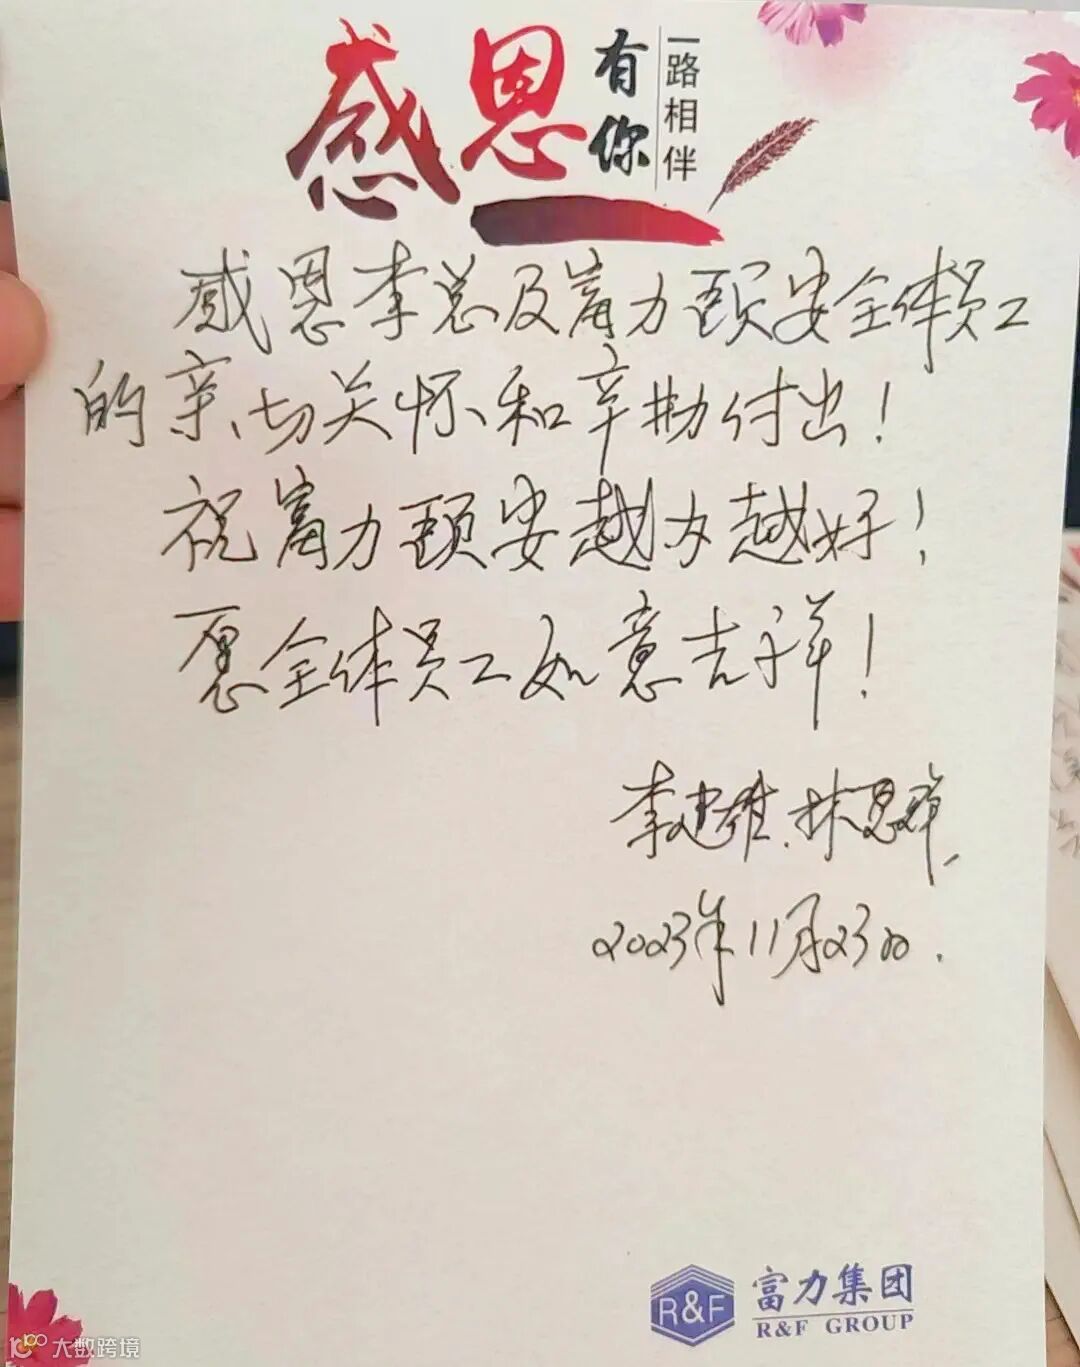 感恩
有你
一路相伴
感恩李总及富力颐安全体员工
的亲切关怀和辛勤付出！
祝富力颐安越办越好！
愿全体员工如意吉祥！
李建雄、林恩群
2023年11月23日.
R&F 富力集团
R&F GROUP
10100 大数跨境